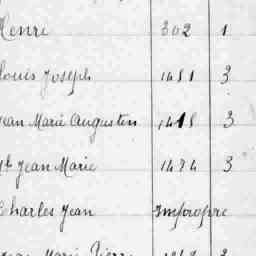 Henri 302 1
Louis Joseph 1481 3
Jean Marie Augustin 1418 3
Jean Marie 1484 3
Charles Jean Impropre
Jean Marie Pierre 3